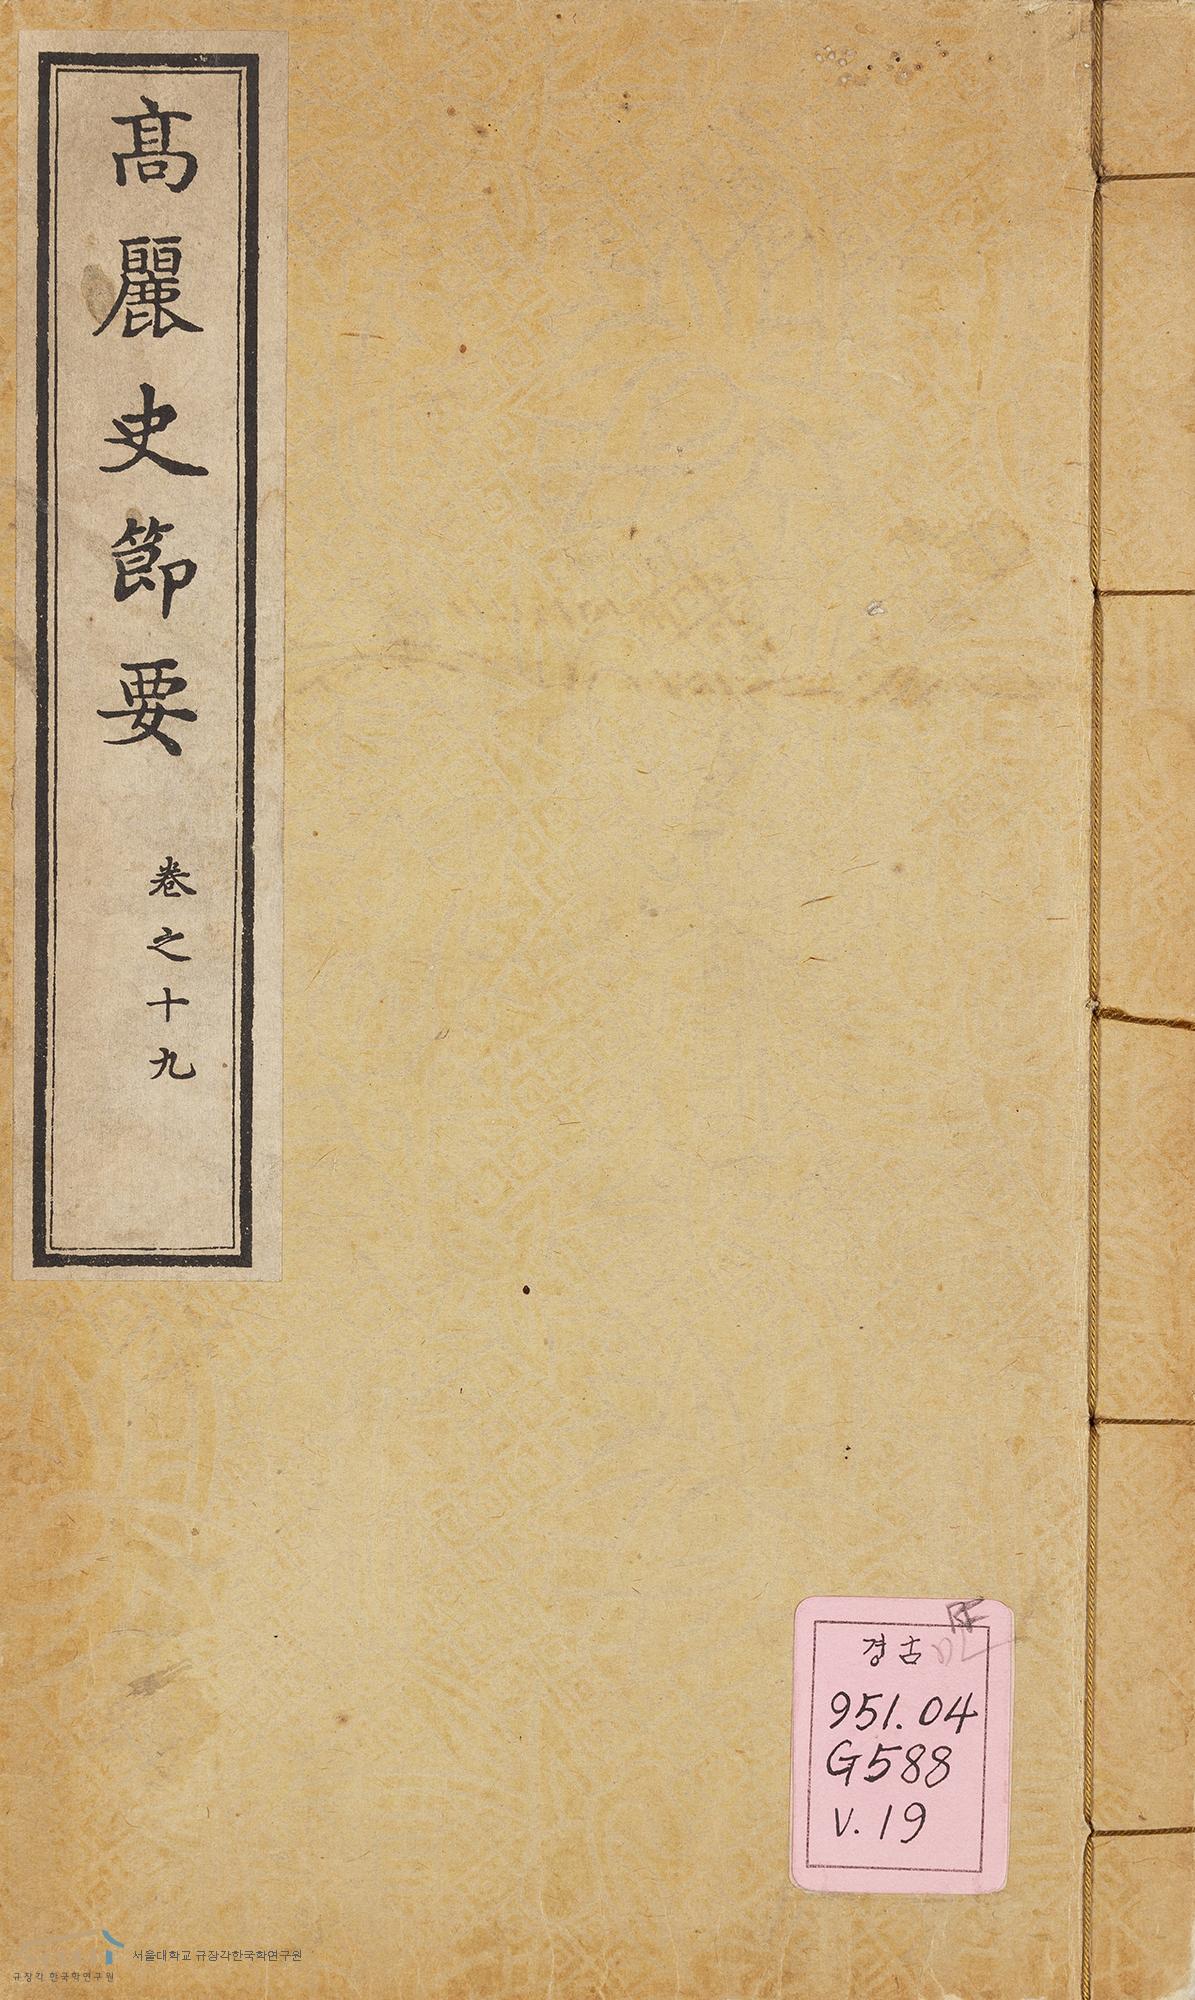 高麗史節要
卷之十九
경古
951.04
G588
V.19
서울대학교 규장각한국학연구원
규장각 한국학연구원